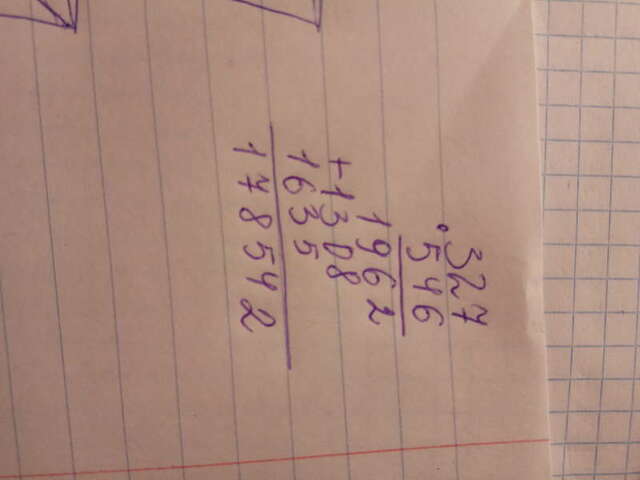 ·327
546
1962
+1308
1635
178542